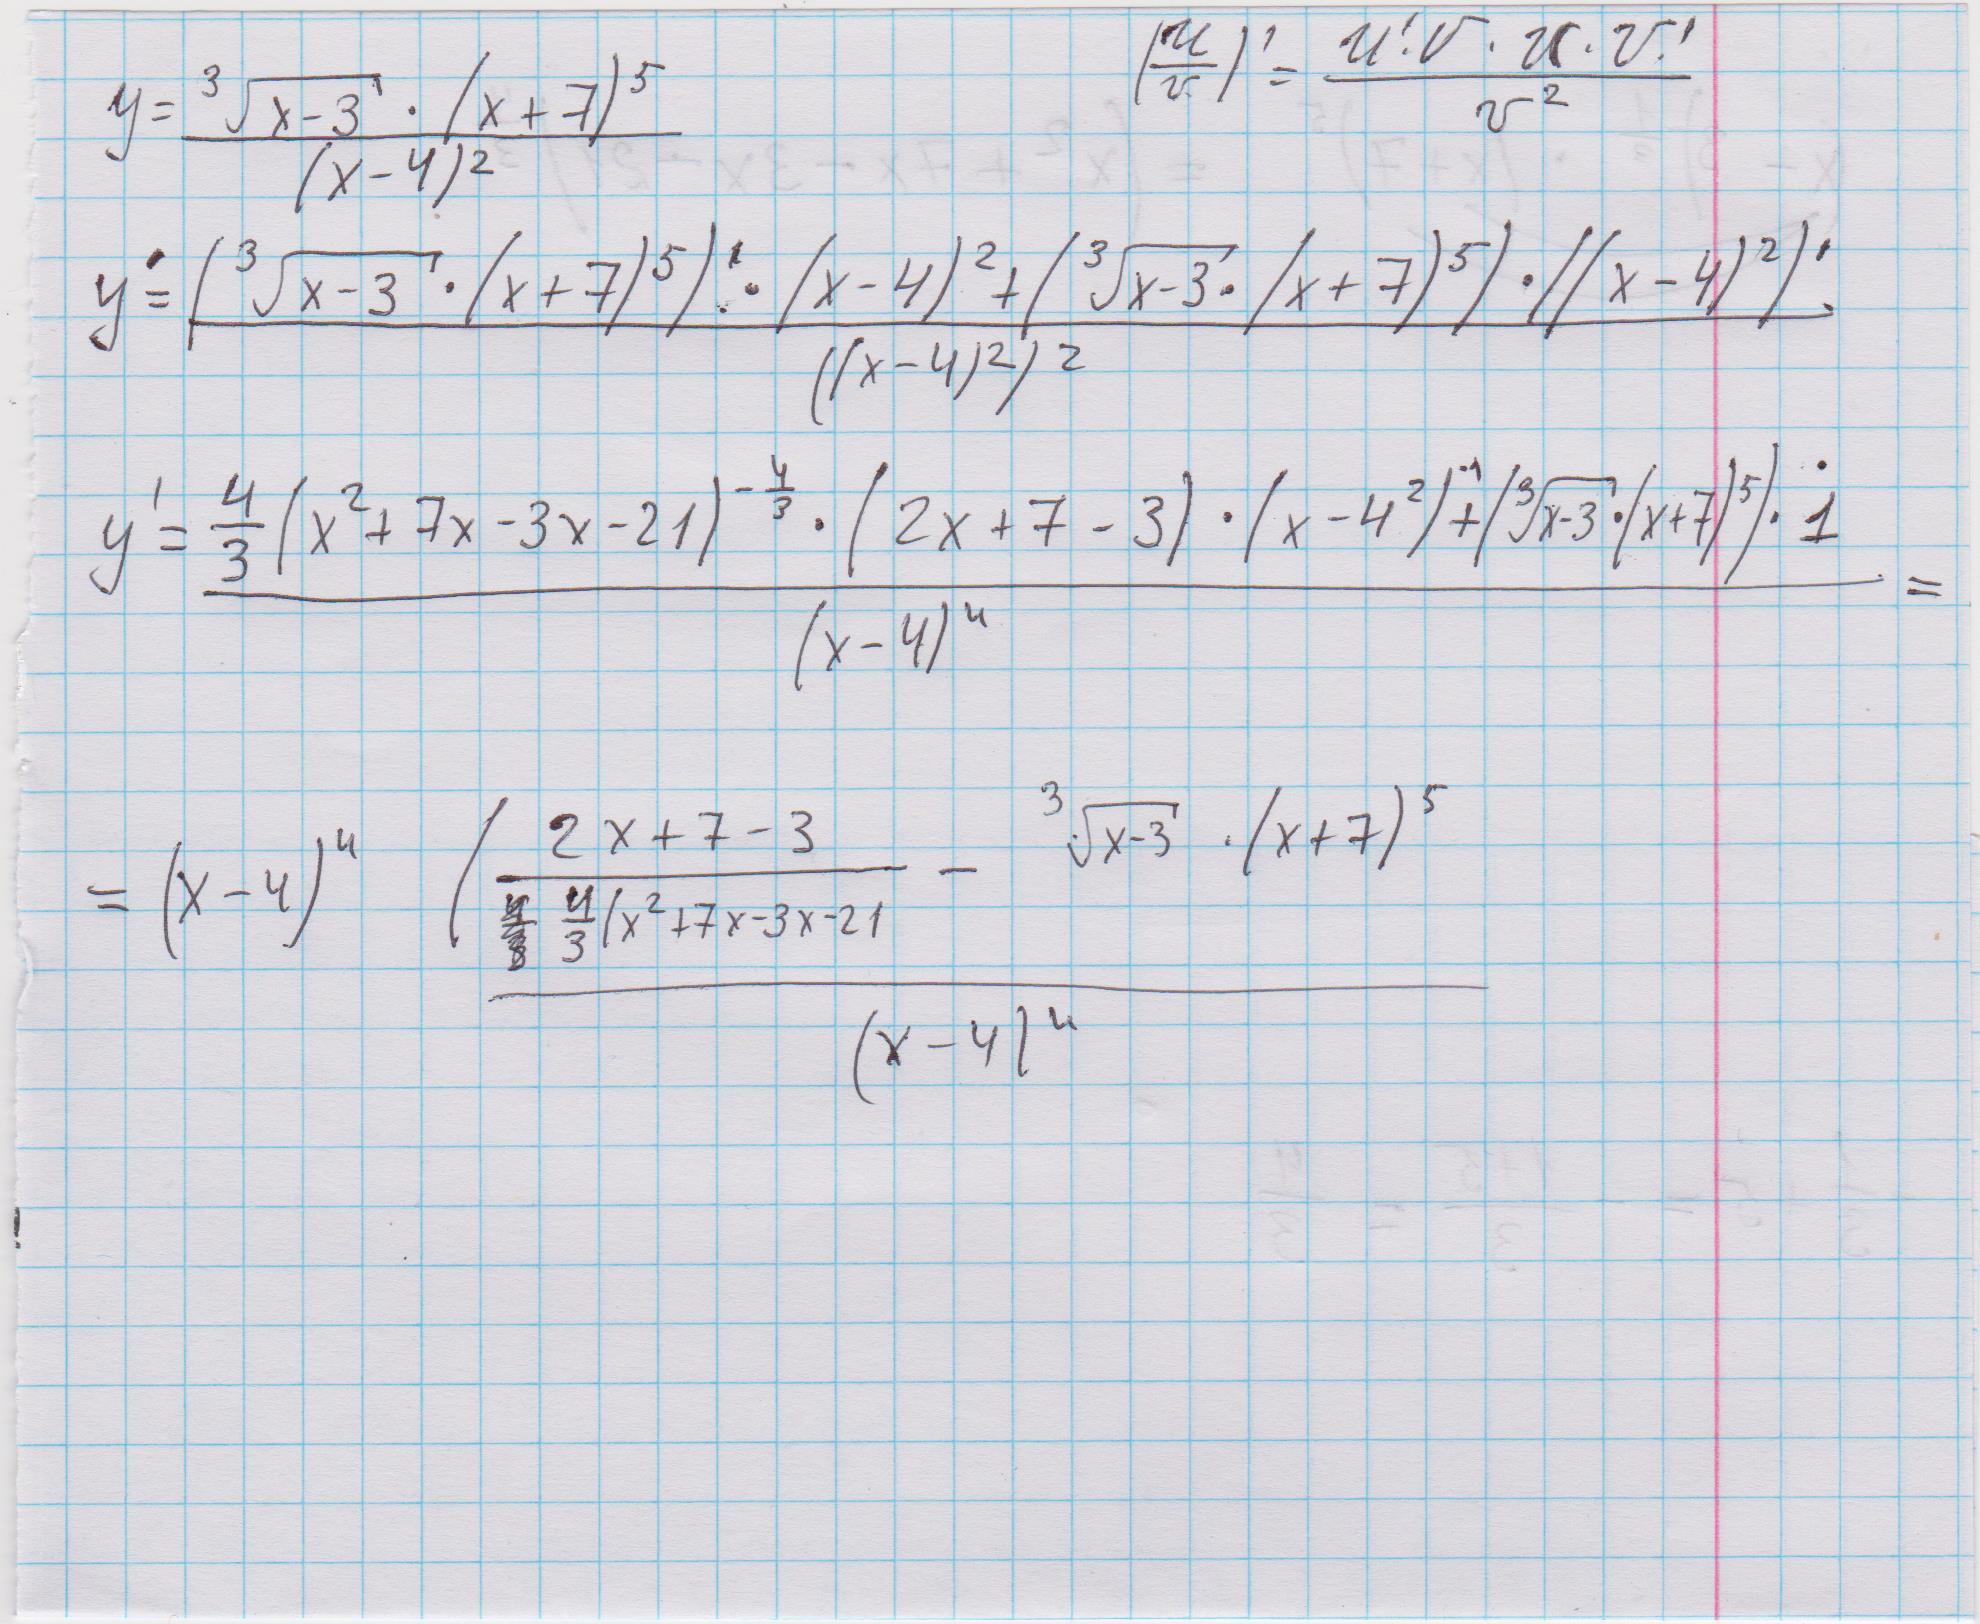 y = ∛(x-3) · (x+7)⁵ / (x-4)²
(u/v)' = u'·v · u·v' / v²
y' = (∛(x-3) · (x+7)⁵)' · (x-4)² + (∛(x-3) · (x+7)⁵) · ((x-4)²)' / ((x-4)²)²
y' = 4/3 (x² + 7x - 3x - 21)^(-4/3) · (2x + 7 - 3) · (x - 4²)⁻¹ + (∛(x-3) · (x+7)⁵) · 1 / (x-4)⁴ =
= (x-4)⁴ ( (2x + 7 - 3) / (4/3 (x² + 7x - 3x - 21) - ∛(x-3) · (x+7)⁵ / (x-4)⁴